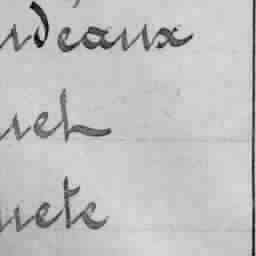 udeaux
uet
uete